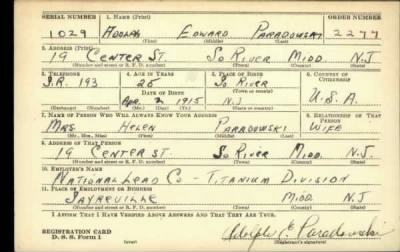 SERIAL NUMBER 1. NAME (Print) ORDER NUMBER
1029 ADOLPH EDWARD PARADOWSKI 2277
(First) (Middle) (Last)
2. ADDRESS (Print)
19 CENTER ST. SO RIVER MIDD. N.J.
(Number and street or R. F. D. number) (Town) (County) (State)
3. TELEPHONE 4. AGE IN YEARS 5. PLACE OF BIRTH 6. COUNTRY OF CITIZENSHIP
S.R. 193 25 SO RIVER
DATE OF BIRTH (Town or county)
APR. 2 1915 N.J U.S.A.
(Exchange) (Number) (Mo.) (Day) (Yr.) (State or country)
7. NAME OF PERSON WHO WILL ALWAYS KNOW YOUR ADDRESS 8. RELATIONSHIP OF THAT PERSON
MRS HELEN PARADOWSKI WIFE
(Mr., Mrs., Miss) (First) (Middle) (Last)
9. ADDRESS OF THAT PERSON
19 CENTER ST. SO RIVER MIDD. N.J.
(Number and street or R. F. D. number) (Town) (County) (State)
10. EMPLOYER'S NAME
NATIONAL LEAD CO - TITANIUM DIVISION
11. PLACE OF EMPLOYMENT OR BUSINESS
SAYREVILLE MIDD N.J.
(Number and street or R. F. D. number) (Town) (County) (State)
I AFFIRM THAT I HAVE VERIFIED ABOVE ANSWERS AND THAT THEY ARE TRUE.
REGISTRATION CARD
D. S. S. Form 1 (over) Adolph E Paradowski
(Registrant's signature)